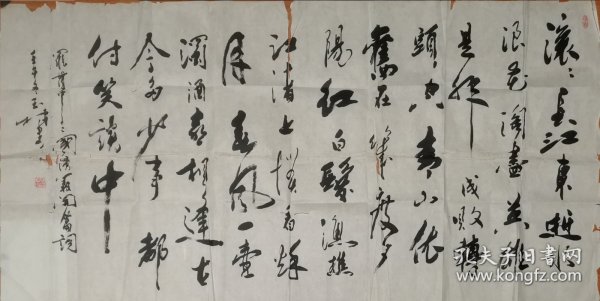 滚滚长江东逝水
浪花淘尽英雄
是非成败转
头空青山依
旧在几度夕
阳红白发渔樵
江渚上惯看秋
月春风一壶
浊酒喜相逢古
今多少事都
付笑谈中
罗贯中三国演义开篇词
孔夫子旧书网
www.kongfz.com